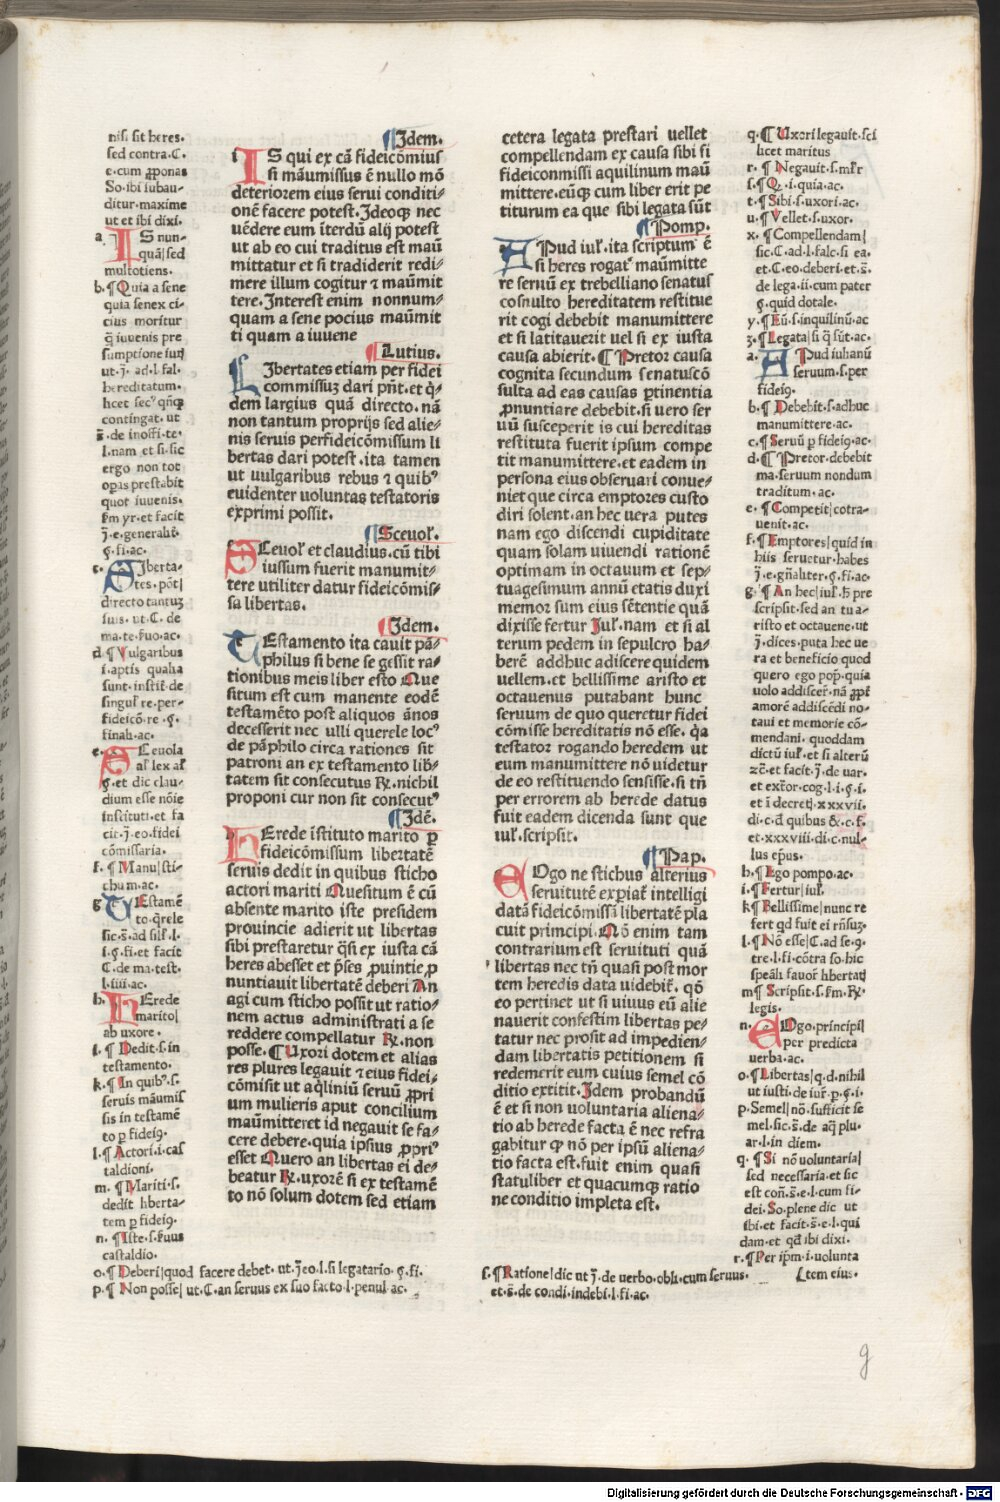 nisi sit heres.
sed contra.C.
e.cum ꝓponas
So.ibi iubau-
ditur.maxime
ut et ibi dixi.
a. IS nun-
quā|sed
multotiens.
b.¶Quia a sene
quia senex ci-
cius moritur
q̄ iuvenis pre
sumptione iur̄
ut.j̄. ad.l.fal.
hereditatum.
contingat. ut
s̄.de inoffi.te.
l.nam et si.sic
ergo non tot
opas prestabit
quot iuvenis.
j̄.e.generalit̄.
§.fi.ac.
c. LIberta-
tes.pōt|
directo tantuz
suis. ut.C. de
d.¶Vulgaribus
i.aptis qualia
fideicō.re.§.
finali.ac.
e. SCeuola
§.et dic clau-
dium esse nōie
instituti.et fa
cit.j̄.eo.fidei
cōmissaria.
f.¶Manu|sti-
chum.ac.
g TEstamē
to.q̄rele
l.§.fi.et facit
C.de ma.test.
l.iiii.ac.
h. HErede
marito|
ab uxore.
i.¶Dedit.s.in
testamento.
k.¶In quibꝰ.s.
seruis māumis
sis in testamē
to ꝑ fideiꝯ.
l.¶Actori.i.cas
taldioni.
m.¶Mariti.s.
dedit liberta-
tem ꝑ fideiꝯ.
n.¶Iste.s.ẜuus
castaldio.
o.¶Deberi|quod facere debet. ut.j̄.eo.l.si legatario.§.fi.
p.¶Non posse| ut.C.an seruus ex suo facto.l.penul.ac.
¶Jdem.
IS qui ex cā fideicōmiss
si māumissus ē nullo mō
deteriorem eius serui conditi-
onē facere potest.Jdeoqꝫ nec
uēdere eum īterdū alij potest
ut ab eo cui traditus est maū
mittatur et si tradiderit redi-
mere illum cogitur ⁊ maūmit
tere.Interest enim nonnum-
quam a sene pocius maūmit
ti quam a iuuene
¶Lutius.
LJbertates etiam per fidei
commissuz dari pn̄t.et q̇-
dem largius quā directo.nā
non tantum proprijs sed alie-
nis seruis perfideicōmissum li
bertas dari potest.ita tamen
ut uulgaribus rebus ⁊ quibꝰ
euidenter uoluntas testatoris
exprimi possit.
¶Sceuoł.
SCeuoł et claudius.cū tibi
iussum fuerit manumit-
tere utiliter datur fideicōmis-
sa libertas.
¶Jdem.
TEstamento ita cauit pā-
philus si bene se gessit ra-
tionibus meis liber esto Que
situm est cum manente eodē
testamēto post aliquos ānos
decesserit nec ulli querele locꝰ
de pāphilo circa rationes sit
patroni an ex testamento lib-
tatem sit consecutus ℞.nichil
proponi cur non sit consecutꝰ
¶Jdē.
HErede īstituto marito ꝑ
fideicōmissum libertatē
seruis dedit in quibus sticho
actori mariti Quesitum ē cū
absente marito iste presidem
prouincie adierit ut libertas
sibi prestaretur q̄si ex iusta cā
heres abesset et p̄ses ꝓuintie ꝓ
nuntiauit libertatē deberi An
agi cum sticho possit ut ratio-
nem actus administrati a se
reddere compellatur ℞.non
posse.¶Uxori dotem et alias
res plures legauit ⁊ eius fidei-
cōmisit ut aq̇liniū seruū ꝓpri
um mulieris aput concilium
maūmitteret id negauit se fa-
cere debere.quia ipsius ꝓpriꝰ
esset Quero an libertas ei de-
beatur ℞.uxorē si ex testamē
to nō solum dotem sed etiam
cetera legata prestari uellet
compellendam ex causa sibi fi
fideiconmissi aquilinum maū
mittere.eūqꝫ cum liber erit pe
titurum ea que sibi legata sūt
¶Pomp.
APud iuł.ita scriptum ē
si heres rogatꝰ maūmitte
re seruū ex trebelliano senatus
cosnulto hereditatem restitue
rit cogi debebit manumittere
et si latitauerit uel si ex iusta
causa abierit.¶Pretor causa
cognita secundum senatuscō
sulta ad eas causas ꝑtinentia
ꝓnuntiare debebit.si uero ser
uū susceperit is cui hereditas
restituta fuerit ipsum compe
tit manumittere.et eadem in
persona eius obseruari conue-
niet que circa emptores custo
diri solent.an hec uera putes
nam ego discendi cupiditate
quam solam uiuendi rationē
optimam in octauum et sep-
tuagesimum annū etatis duxi
memor sum eius sētentie quā
dixisse fertur Juł.nam et si al
terum pedem in sepulcro ha-
berē addhuc adiscere quidem
uellem.et bellissime aristo et
octauenus putabant hunc
seruum de quo queretur fidei
cōmisse hereditatis nō esse. q̇a
testator rogando heredem ut
eum manumittere nō uidetur
de eo restituendo sensisse.si tn̄
per errorem ab herede datus
fuit eadem dicenda sunt que
iuł.scripsit.
¶Pap.
ROgo ne stichus alterius
seruitutē exꝑiat̄ intelligi
datā fideicōmissā libertatē pla
cuit principi.Nō enim tam
contrarium est seruituti quā
libertas nec tn̄ quasi post mor
tem heredis data uidebit̄. qō
eo pertinet ut si uiuus eū alie
nauerit confestim libertas pe-
tatur nec prosit ad impedien-
dam libertatis petitionem si
redemerit eum cuius semel cō
ditio extitit.Jdem probandū
ē et si non uoluntaria aliena-
tio ab herede facta ē nec refra
gabitur qꝫ nō per ipsū aliena-
tio facta est.fuit enim quasi
statuliber et quacumqꝫ ratio
ne conditio impleta est.
q.¶Uxori legauit.sci
licet maritus
r.¶Negauit.s.mr̄
s.¶Q̄.i.quia.ac.
t.¶Sibi.s.uxori.ac.
u.¶Vellet.s.uxor.
x.¶Compellendam|
sic.C.ad.l.falc.si ea.
et.C.eo.deberi.et.s̄.
de lega.ii.cum pater
§.quid dotale.
y.¶Eū.s.inquilinū.ac
z.¶Legata|si q̄ sūt.ac.
a. APud iulianū
seruum.s.per
fideiꝯ.
b.¶Debebit.s.adhuc
manumittere.ac.
c.¶Seruū ꝑ fideiꝯ.ac.
d.¶Pretor.debebit
ma.seruum nondum
traditum.ac.
e.¶Competit|cotra-
uenit.ac.
f.¶Emptores|quid in
hiis seruetur.habes
j̄.e.gn̄aliter.§.fi.ac.
g.¶An hec|iuł.h̄ pre
scripsit.sed an tu a-
risto et octauene.ut
j̄.dices.puta hec ue
ra et beneficio quod
quero ego pop̄.quia
uolo addiscer̄.nā ꝓp̄t
amorē addiscēdi no-
taui et memorie cō-
mendani. quoddam
dictū iuł.et si alterū
⁊c̄.et facit.j̄.de uar.
et ext̄or.cog.l.i.§.i.
et ī decret|.xxxvii.
di.c.ā quibus &.c.f.
et.xxxviii.di.c.nul-
lus ep̄us.
h.¶Ego pompo.ac.
i.¶Fertur|iuł.
k¶Bellissime|nunc re
fert qd fuit ei rn̄suz.
l.¶Nō esse|C.ad se.9.
tre.l.fi.cōtra so.hic
speāli fauor̄ libertat|
m¶Scripsit.s.ẜm.℞.
legis.
n. ROgo.principi|
per predicta
uerba.ac.
o.¶Libertas|q.d.nihil
ut iusti.de iur̄.p.§.i.
p.Semel|nō.sufficit se
mel.sic.s̄.de aq̄ plu-
ar.l.in diem.
q.¶Si nō uoluntaria|
sed necessaria.et sic
est con̄.s̄.e.l.cum fi-
dei.So.plene dic ut
ibi.et facit.s̄.e.l.qui
dam.et qd ibi dixi.
r.¶Per ip̄m.i.volunta
s.¶Ratione|dic ut j̄.de uerbo.obli.cum seruus. Item eius.
et.s̄.de condi.indebi.l.fi.ac.
g
Digitalisierung gefördert durch die Deutsche Forschungsgemeinschaft - DFG